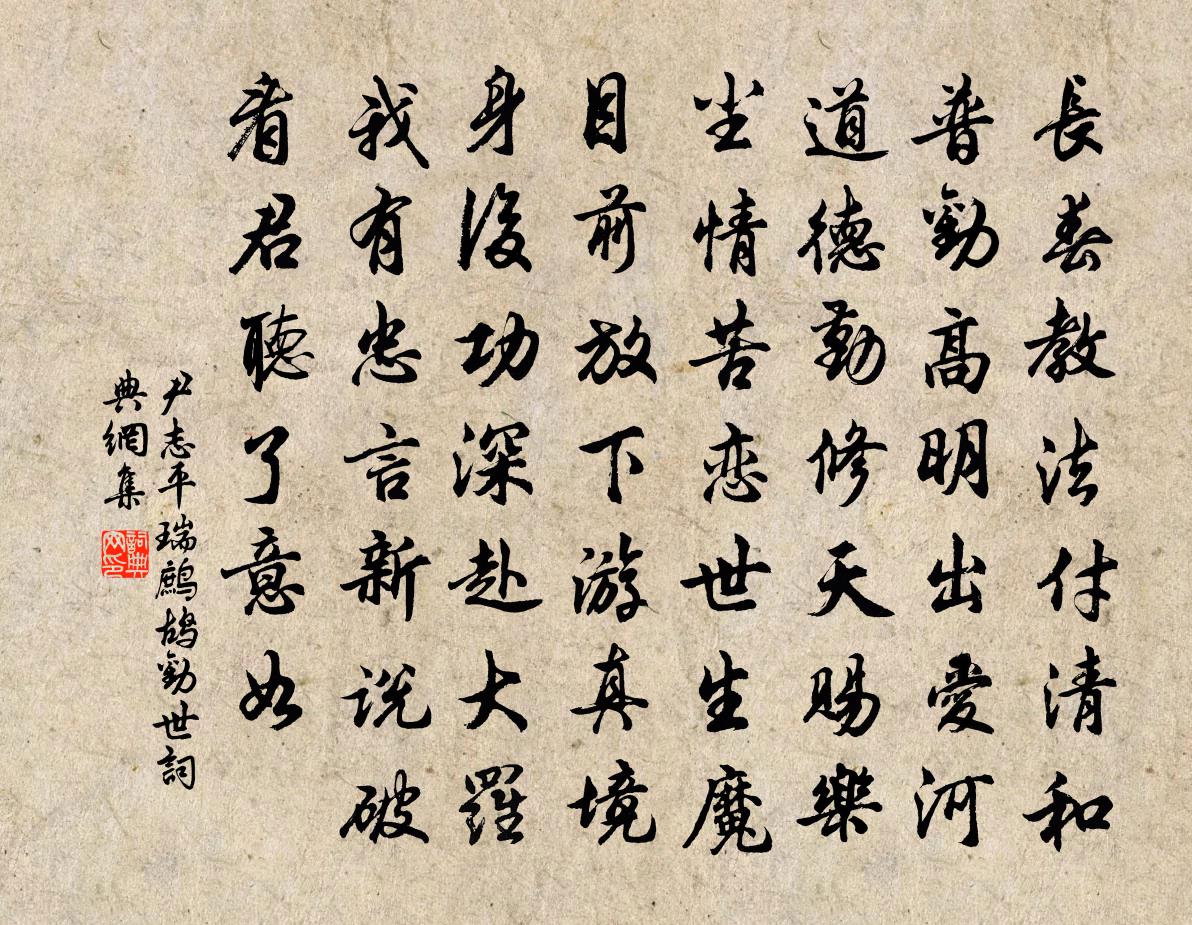 長春教法付清和
普勸高明出愛河
道德勤修天賜樂
尘情苦恋世生魔
目前放下游真境
身後功深赴大羅
我有忠言新说破
看君聽了意如
尹志平瑞鷓鴣勸世詞
典網集
詞典网印